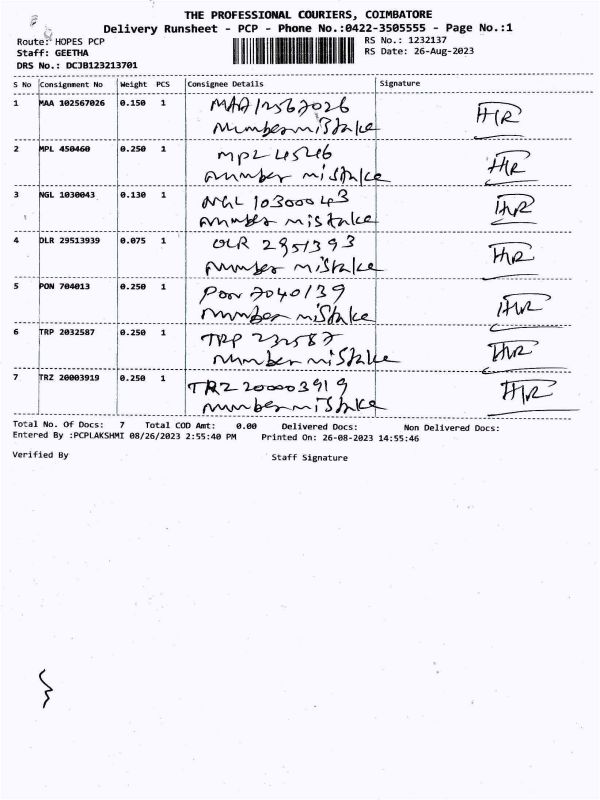 THE PROFESSIONAL COURIERS, COIMBATORE
Delivery Runsheet - PCP - Phone No.:0422-3505555 - Page No.:1
Route: HOPES PCP RS No.: 1232137
Staff: GEETHA RS Date: 26-Aug-2023
DRS No.: DCJB123213701
S No Consignment No Weight PCS Consignee Details Signature
1 MAA 102567026 0.150 1 MAA12567026
Number mistake
2 MPL 450460 0.250 1 MPL 45046
number mistake
3 NGL 1030043 0.130 1 NGL 10300043
number mistake
4 DLR 29513939 0.075 1 DLR 2951393
number mistake
5 PON 704013 0.250 1 PON 7040139
number mistake
6 TRP 2032587 0.250 1 TRP 232587
number mistake
7 TRZ 20003919 0.250 1 TRZ 200003919
number mistake
Total No. Of Docs: 7 Total COD Amt: 0.00 Delivered Docs: Non Delivered Docs:
Entered By :PCPLAKSHMI 08/26/2023 2:55:40 PM Printed On: 26-08-2023 14:55:46
Verified By Staff Signature